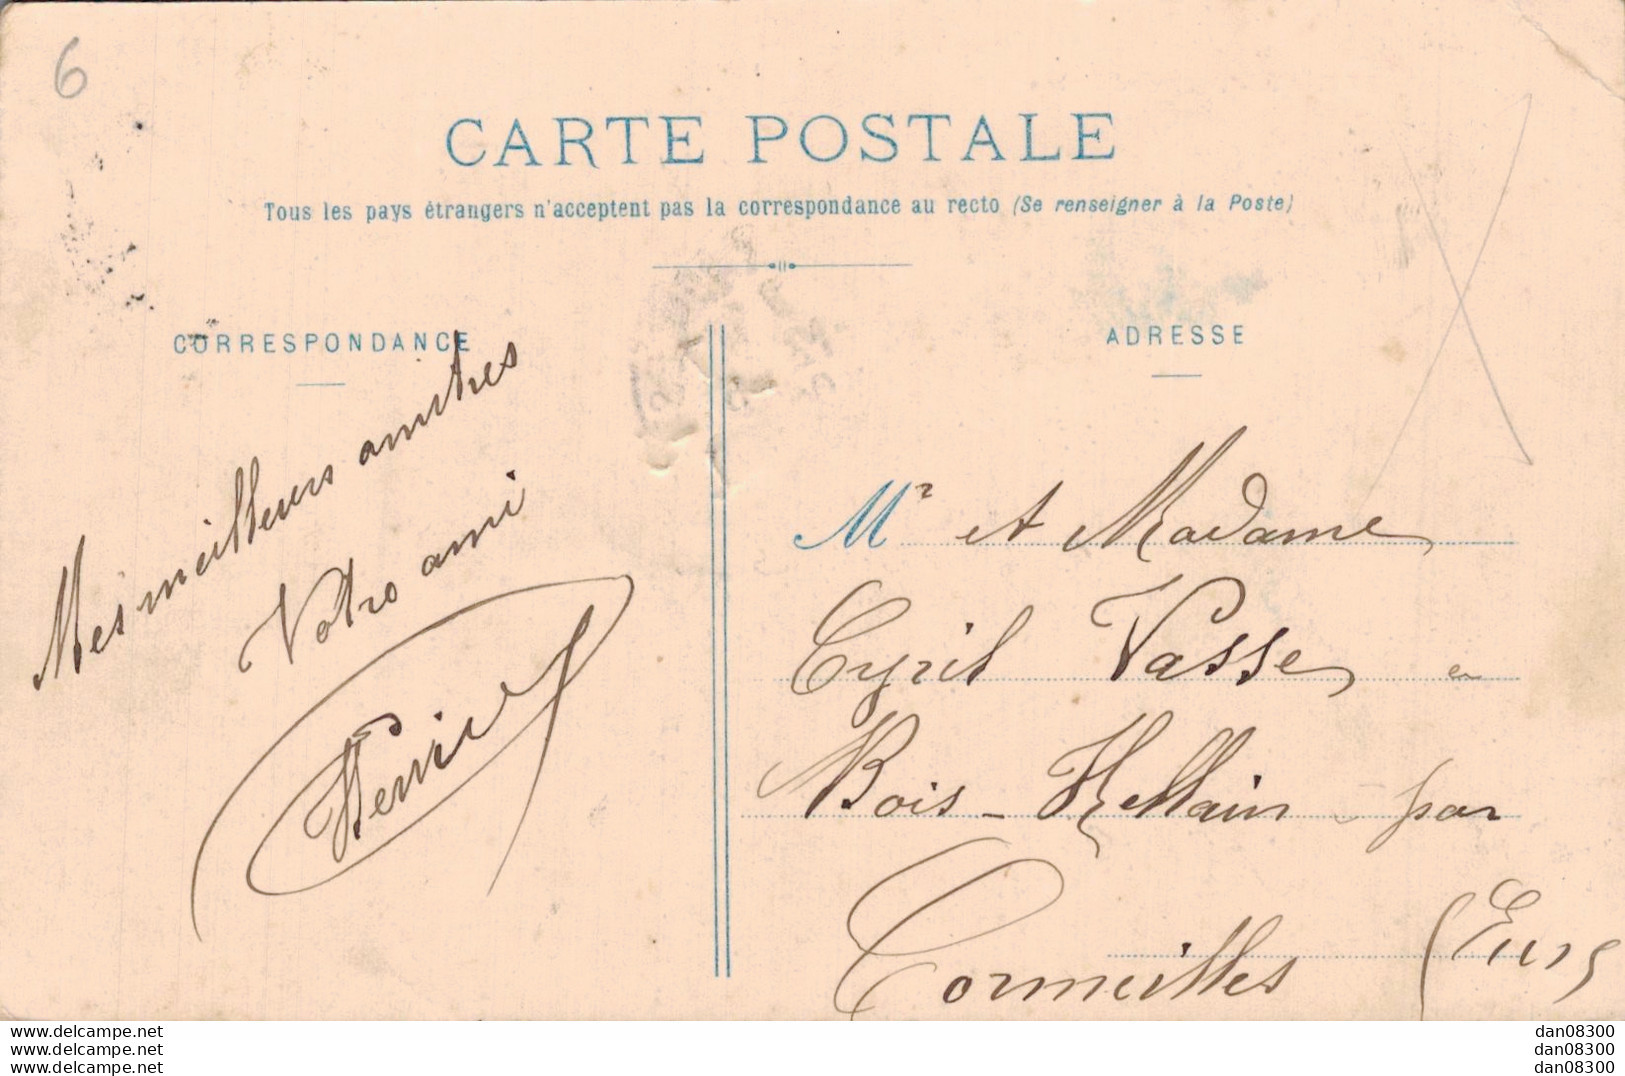 6
CARTE POSTALE
Tous les pays étrangers n'acceptent pas la correspondance au recto (Se renseigner à la Poste)
CORRESPONDANCE
Mes meilleurs amitres
Votre ami
Henri
ADRESSE
Mr et Madame
Cyril Vasse en
Bois-Hellain par
Cormeilles (Eure)
www.delcampe.net
www.delcampe.net
www.delcampe.net
dan08300
dan08300
dan08300